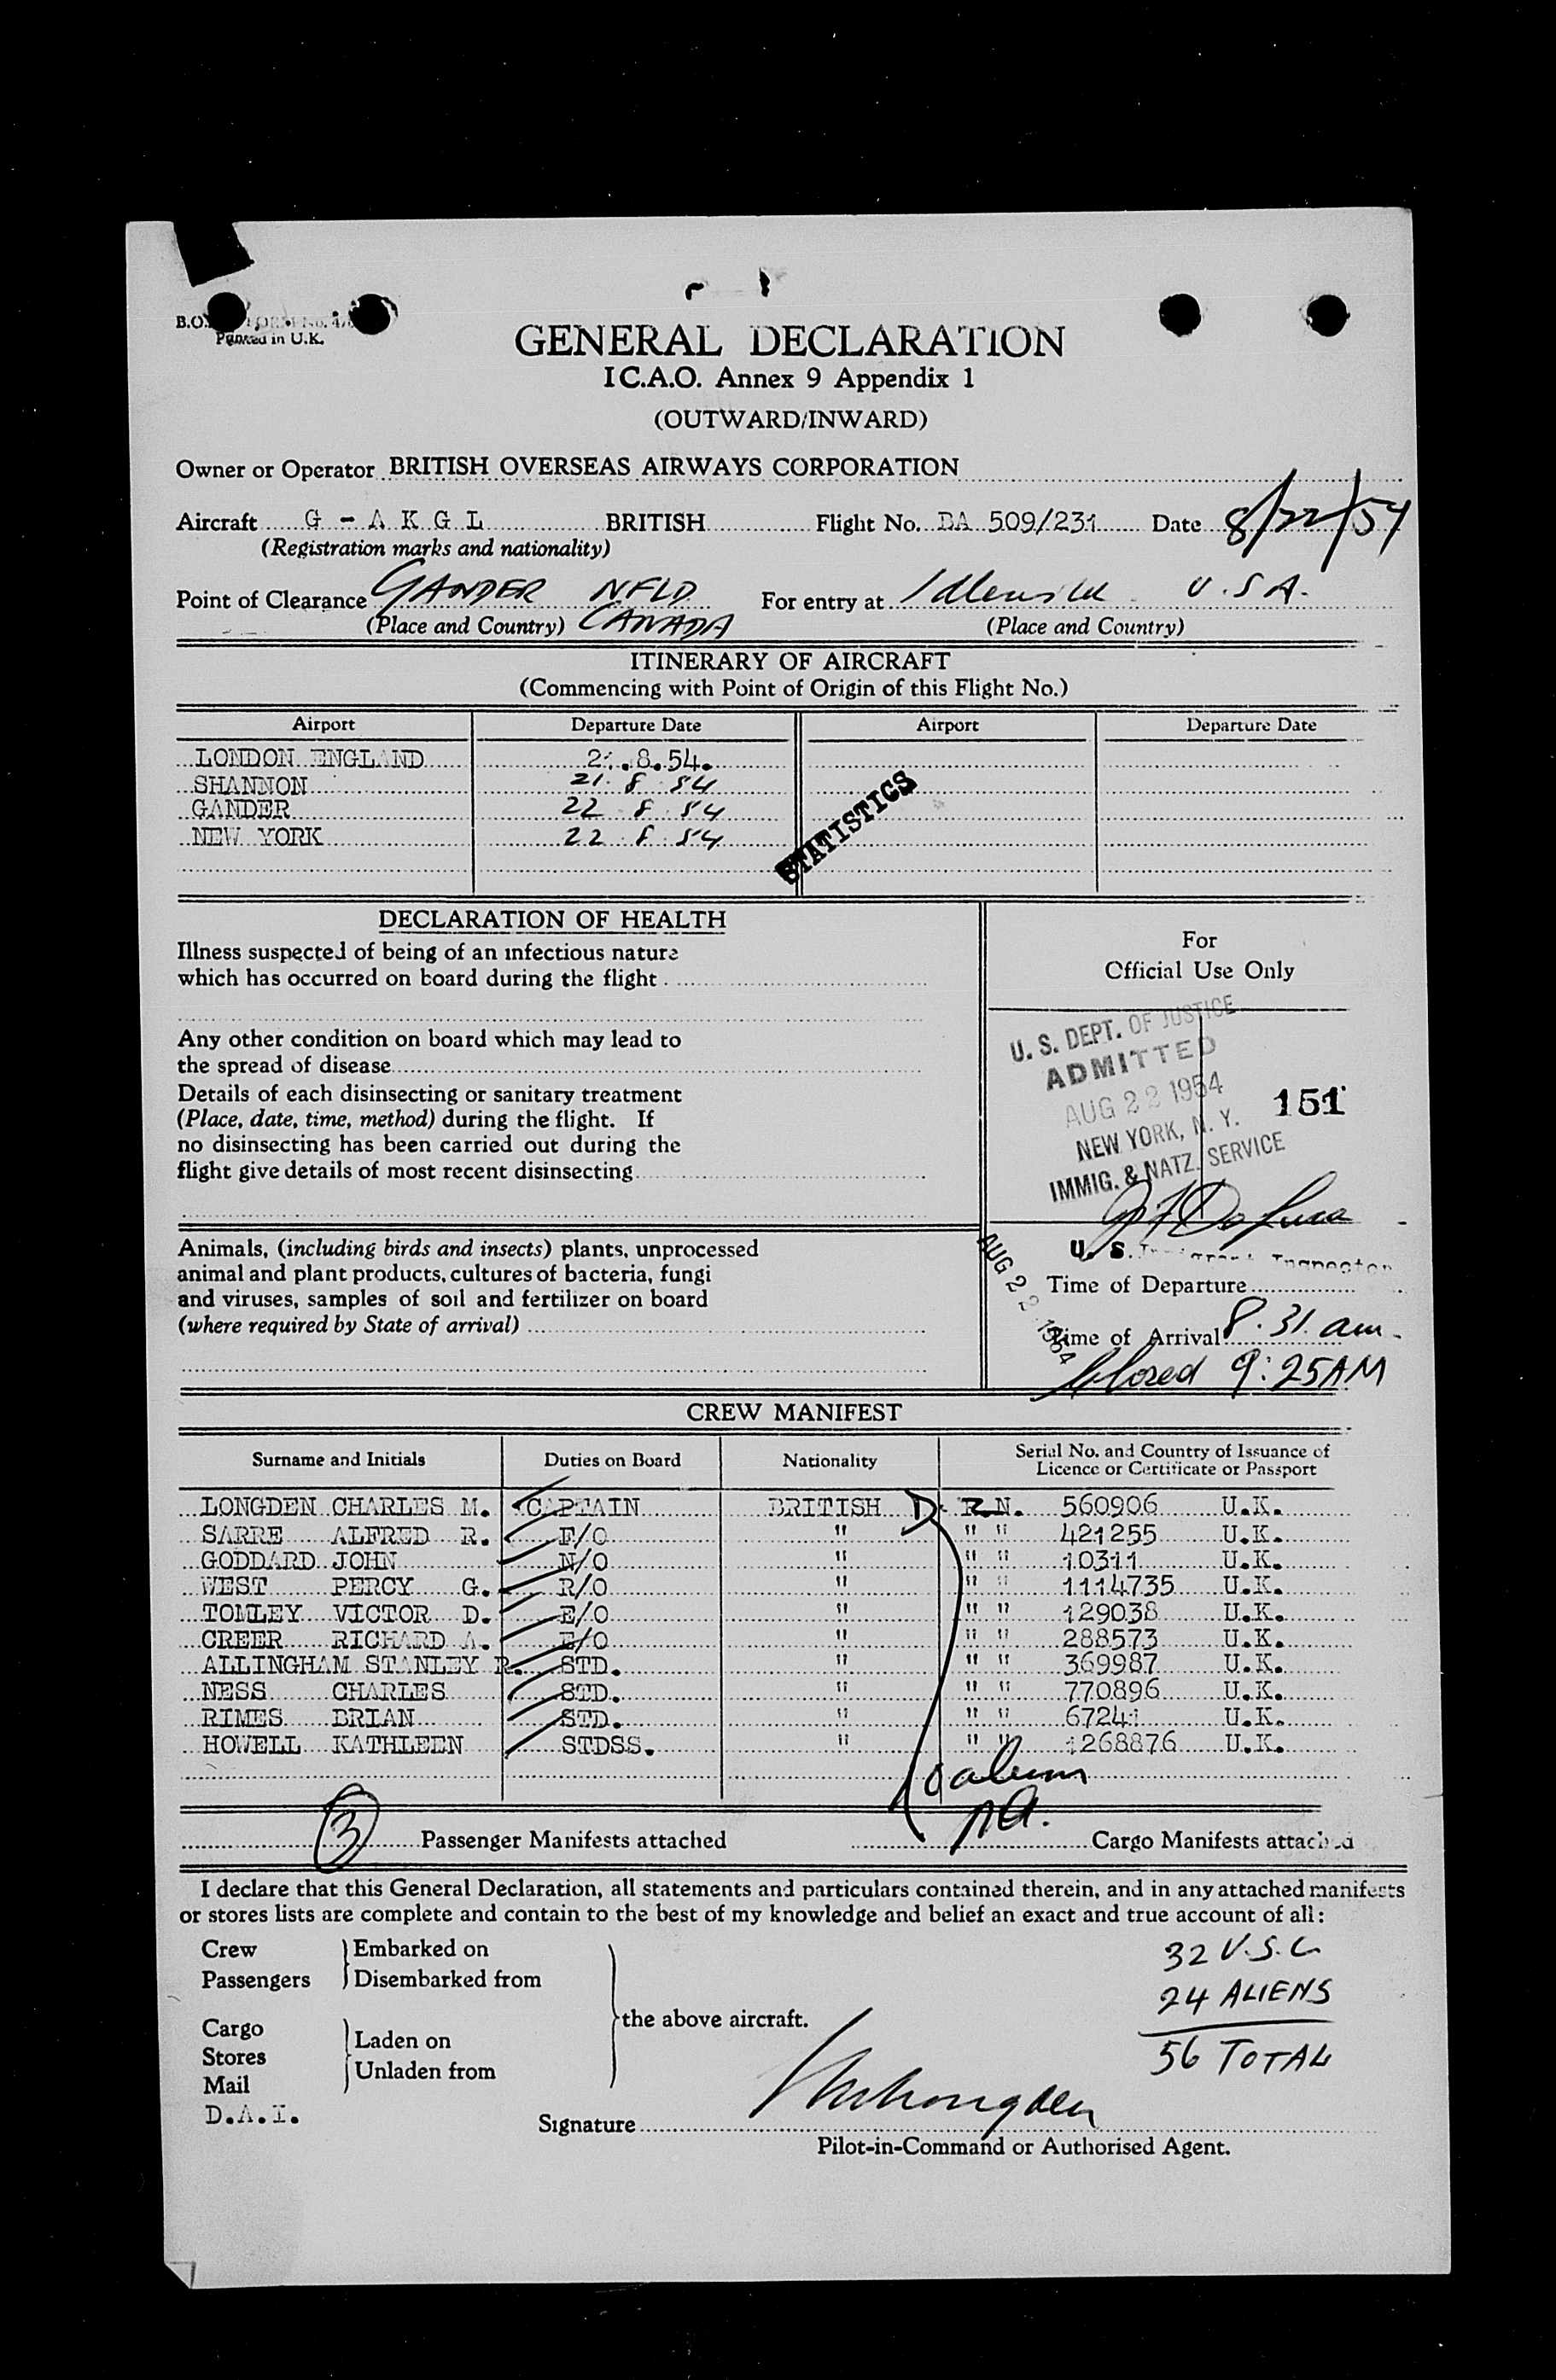 Printed in U.K.
GENERAL DECLARATION
I C.A.O. Annex 9 Appendix 1
(OUTWARD/INWARD)
Owner or Operator BRITISH OVERSEAS AIRWAYS CORPORATION
Aircraft G - A K G L BRITISH Flight No. BA 509/231 Date 8/22/54
(Registration marks and nationality)
Point of Clearance GANDER NFLD For entry at Idlewild U.S.A.
(Place and Country) CANADA (Place and Country)
ITINERARY OF AIRCRAFT
(Commencing with Point of Origin of this Flight No.)
Airport Departure Date Airport Departure Date
LONDON ENGLAND 21.8.54.
SHANNON 21.8.54
GANDER 22.8.54
NEW YORK 22.8.54
STATISTICS
DECLARATION OF HEALTH
Illness suspected of being of an infectious nature
which has occurred on board during the flight
Any other condition on board which may lead to
the spread of disease
Details of each disinsecting or sanitary treatment
(Place, date, time, method) during the flight. If
no disinsecting has been carried out during the
flight give details of most recent disinsecting
Animals, (including birds and insects) plants, unprocessed
animal and plant products, cultures of bacteria, fungi
and viruses, samples of soil and fertilizer on board
(where required by State of arrival)
For
Official Use Only
U. S. DEPT. OF JUSTICE
ADMITTED
AUG 22 1954
151
NEW YORK, N. Y.
IMMIG. & NATZ. SERVICE
U. S. Immigrant Inspector
AUG 22 1954
Time of Departure
Time of Arrival 8.31 am.
Closed 9:25AM
CREW MANIFEST
Surname and Initials Duties on Board Nationality Serial No. and Country of Issuance of
Licence or Certificate or Passport
LONGDEN CHARLES M. CAPTAIN BRITISH D R.N. 560906 U.K.
SARRE ALFRED R. F/O " " " 421255 U.K.
GODDARD JOHN N/O " " " 10311 U.K.
WEST PERCY G. R/O " " " 1114735 U.K.
TOMLEY VICTOR D. E/O " " " 129038 U.K.
CREER RICHARD A. E/O " " " 288573 U.K.
ALLINGHAM STANLEY R. STD. " " " 369987 U.K.
NESS CHARLES STD. " " " 770896 U.K.
RIMES BRIAN STD. " " " 67241 U.K.
HOWELL KATHLEEN STDSS. " " " 1268876 U.K.
3 Passenger Manifests attached Cargo Manifests attached
I declare that this General Declaration, all statements and particulars contained therein, and in any attached manifests
or stores lists are complete and contain to the best of my knowledge and belief an exact and true account of all:
Crew Embarked on
Passengers Disembarked from
Cargo Laden on
Stores Unladen from
Mail
the above aircraft.
32 U.S.C.
24 ALIENS
56 TOTAL
D.A.I.
Signature
Pilot-in-Command or Authorised Agent.